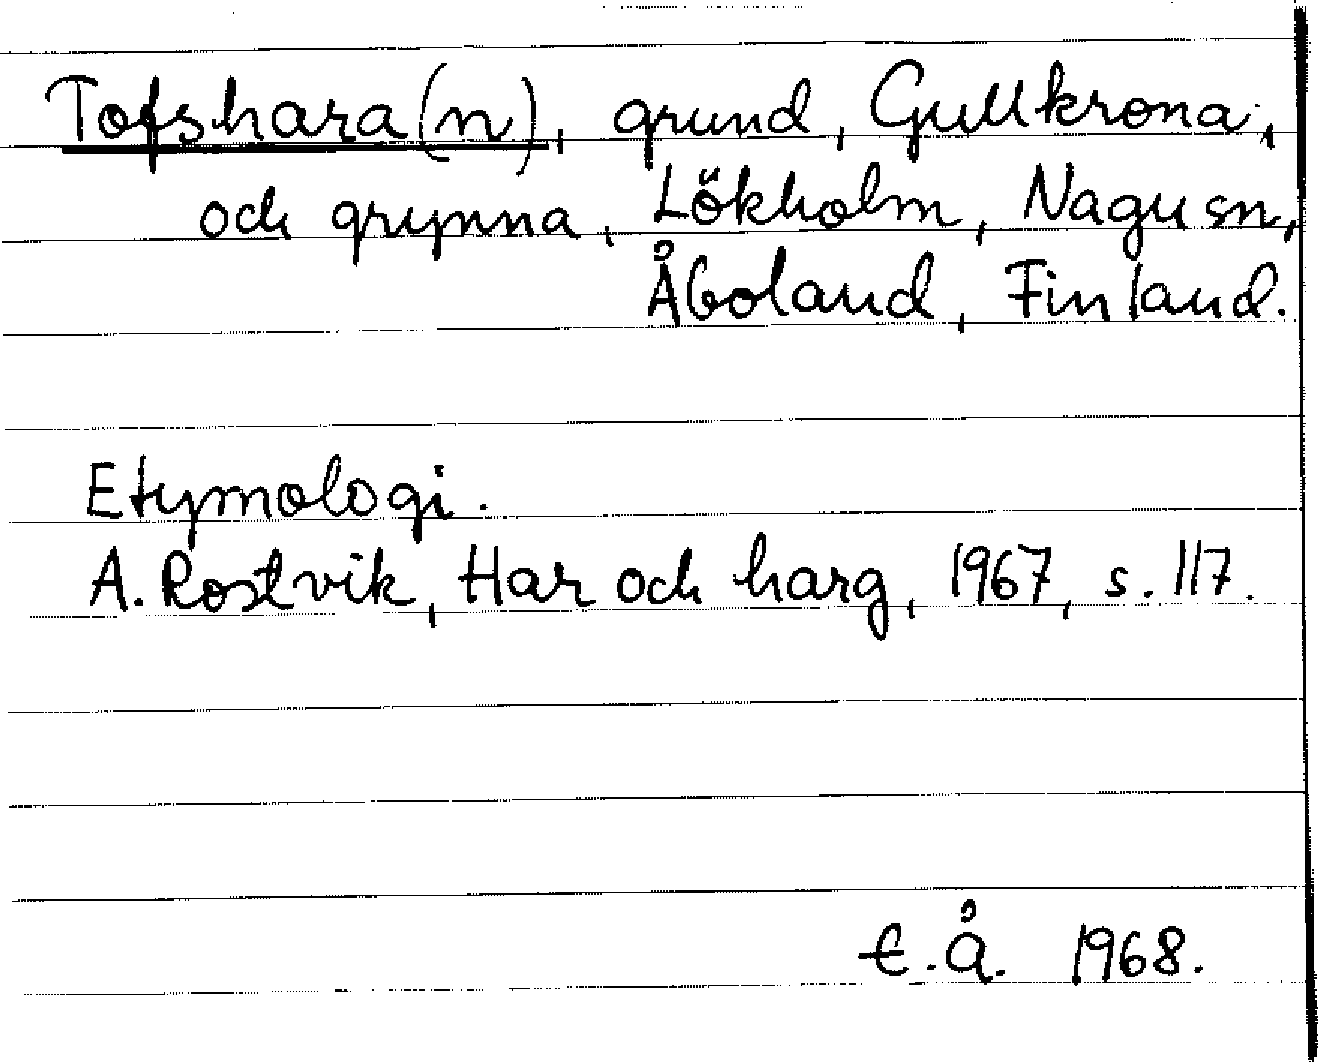 Tofshara(n), grund, Gullkrona,
och grynna, Lökholm, Nagu sn,
Åboland, Finland.
Etymologi.
A. Rostvik, Har och harg, 1967, s. 117.
t.Å. 1968.